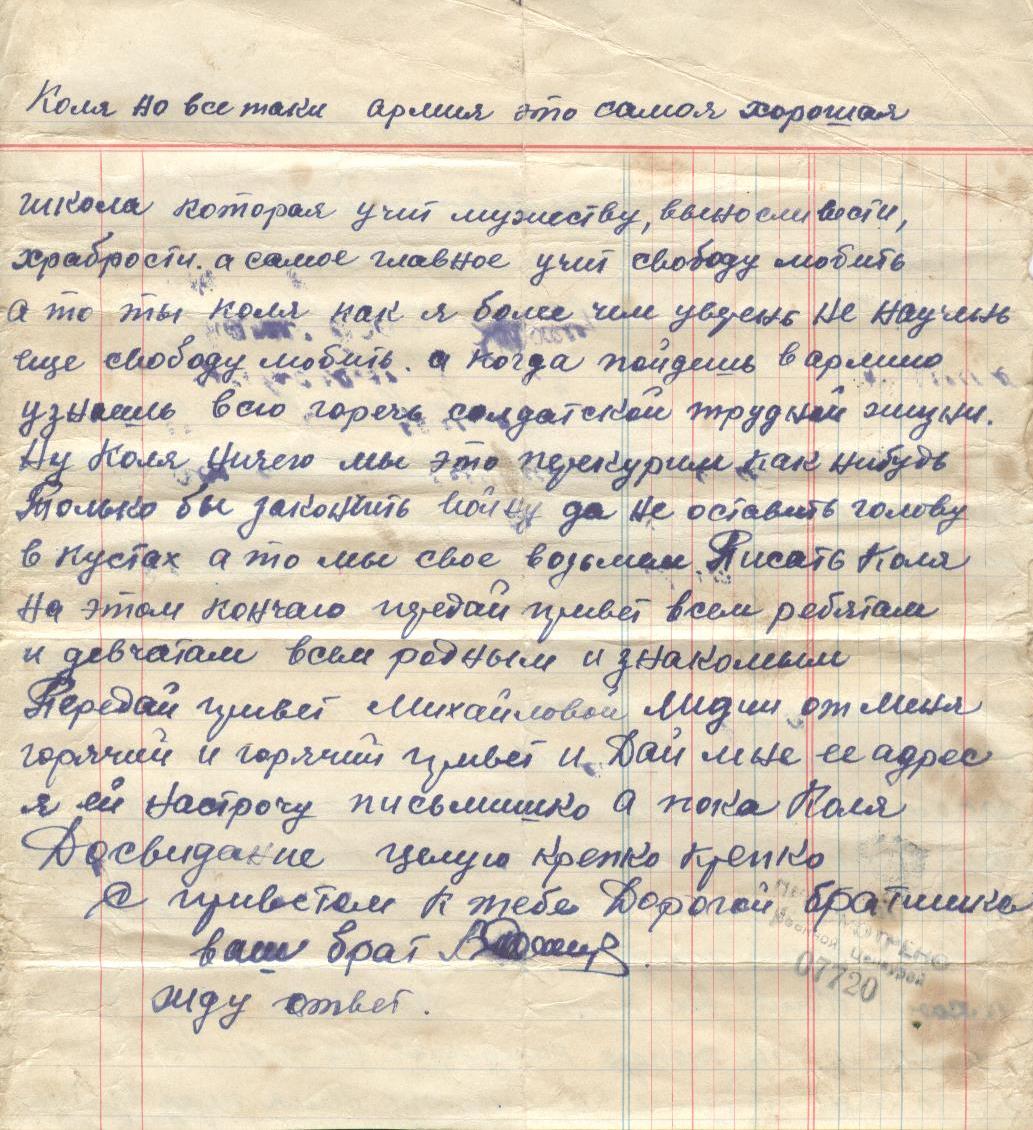 Коля но все таки армия это самая хорошая
школа которая учит мужеству, выносливости,
храбрости. а самое главное учит свободу любить
а то ты Коля как я более чем уверень не научень
еще свободу любить. а когда пойдешь в армию
узнаешь всю горечь солдатской трудной жизни.
Ну Коля ничего мы это перекурим как нибудь
Только бы закончить войну да не оставить голову
в кустах а то мы свое возьмем Писать Коля
на этом кончаю передай привет всем ребятам
и девчатам всем родным и знакомым
Передай привет Михайловой Лидии от меня
горячий и горячий привет и Дай мне ее адрес
я ей настрочу письмишко а пока Коля
Досвидание целую крепко крепко
С приветом к тебе Дорогой братишка
ваш брат
жду ответ.
Военной Цензурой
07720